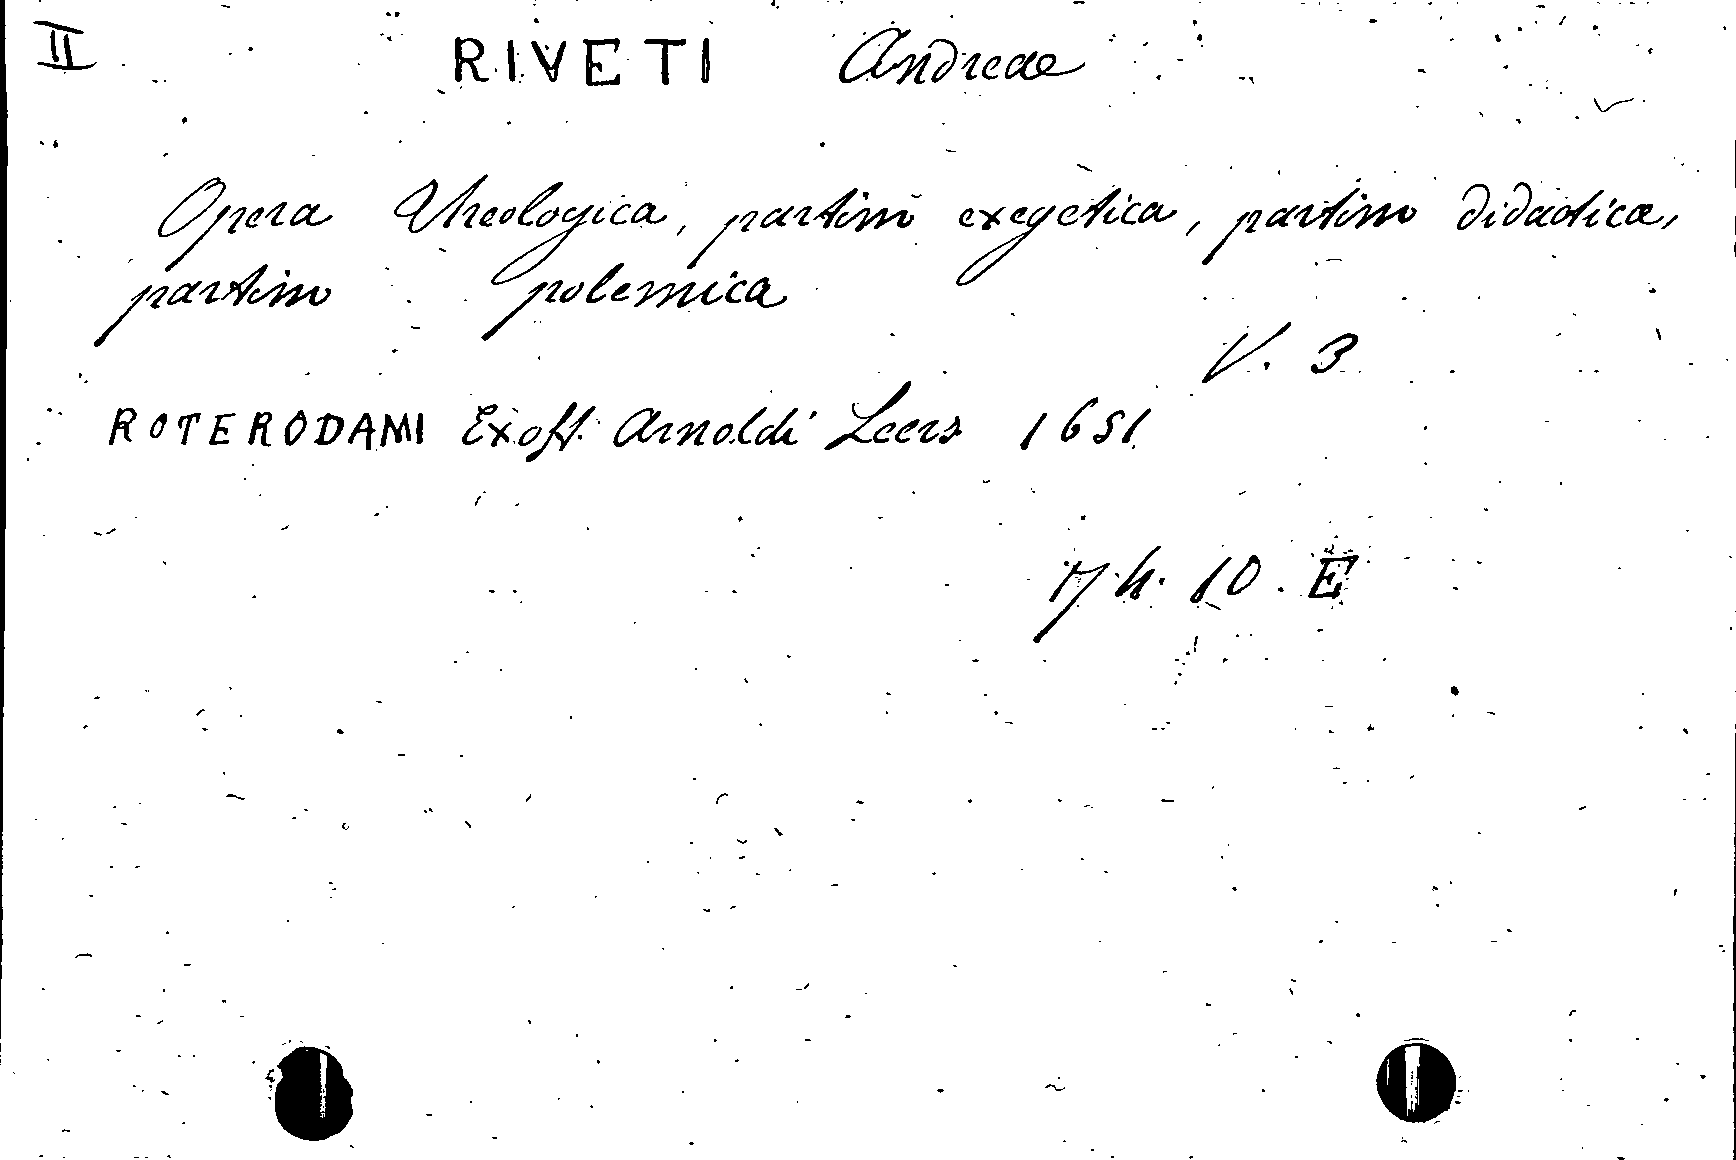 II RIVETI Andreae
Opera Theologica, partim exegetica, partim didactica,
partim polemica
V. 3
ROTERODAMI Ex off. Arnoldi Leers 1651
17 h. 10. E